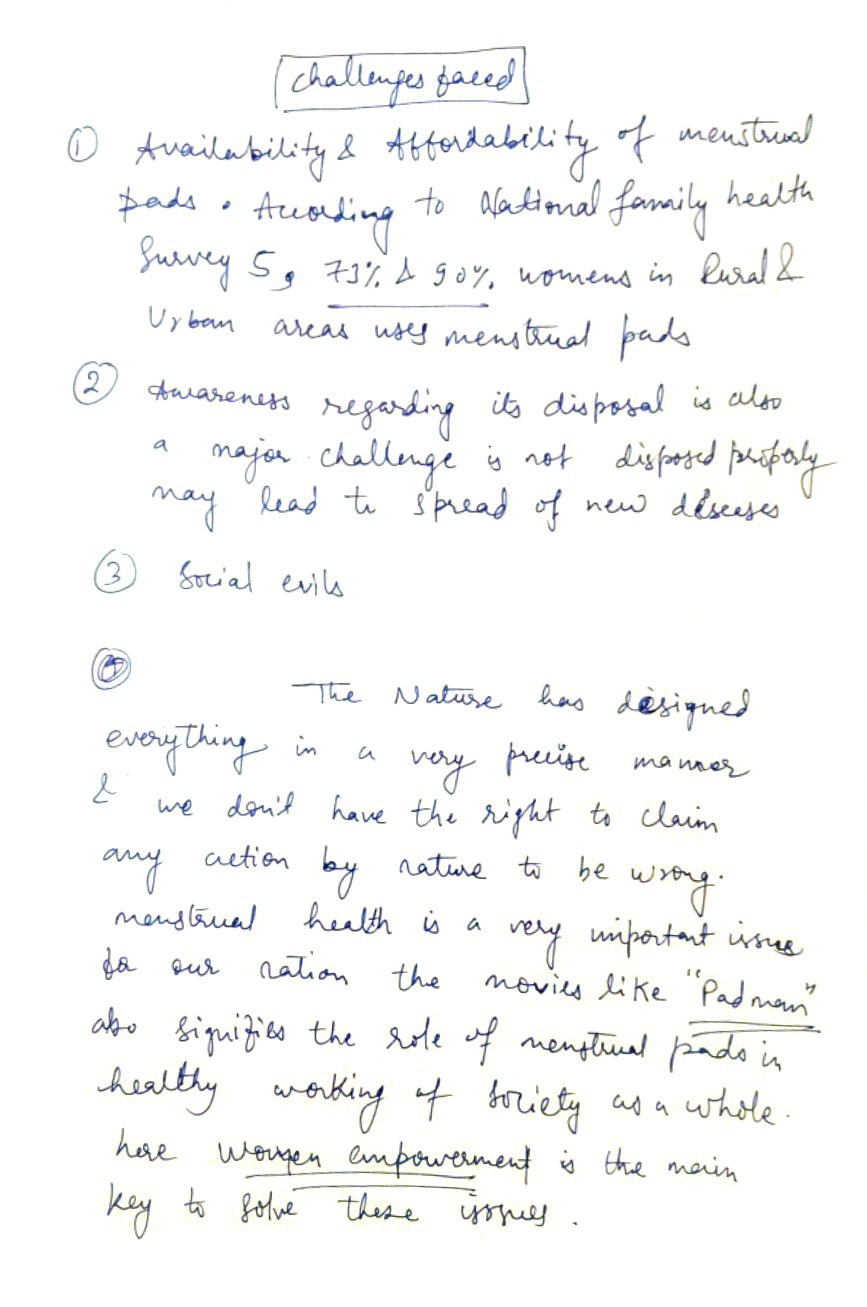 Challenges faced
① Availability & Affordability of menstrual
pads. According to National family health
Survey 5, 73% & 90% womens in Rural &
Urban areas uses menstrual pads
② Awareness regarding its disposal is also
a major challenge is not disposed properly
may lead to spread of new diseases
③ Social evils
④
The Nature has designed
everything in a very precise manner
& we don't have the right to claim
any action by nature to be wrong.
menstrual health is a very important issue
for our nation the movies like "Padman"
also signifies the role of menstrual pads in
healthy working of society as a whole.
here women empowerment is the main
key to solve these issues.